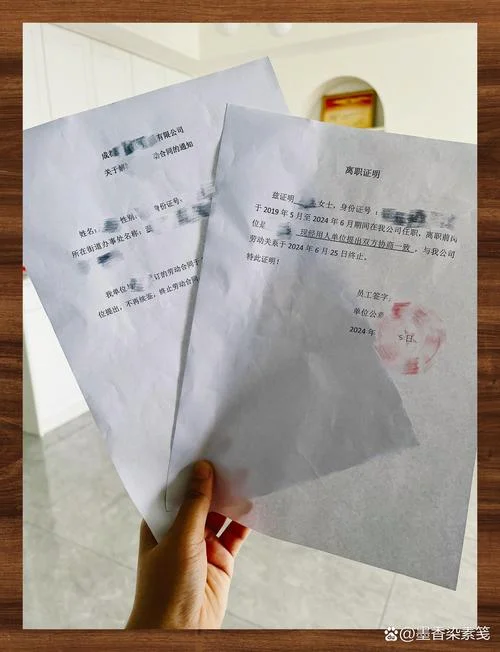 成都 有限公司
关于解 动合同的通知
姓名: 性别: 身份证号:
所在街道办事处名称:
我单位与 订的劳动合同于
位提出,不再续签,终止劳动合同
离职证明
兹证明 女士,身份证号:
于 2019 年 5 月至 2024 年 6 月期间在我公司任职,离职前岗
位是 ,现经用人单位提出双方协商一致,与我公司
劳动关系于 2024 年 6 月 25 日终止。
特此证明!
员工签字:
单位公章
2024 年 5 日
百度 @墨香染素笺